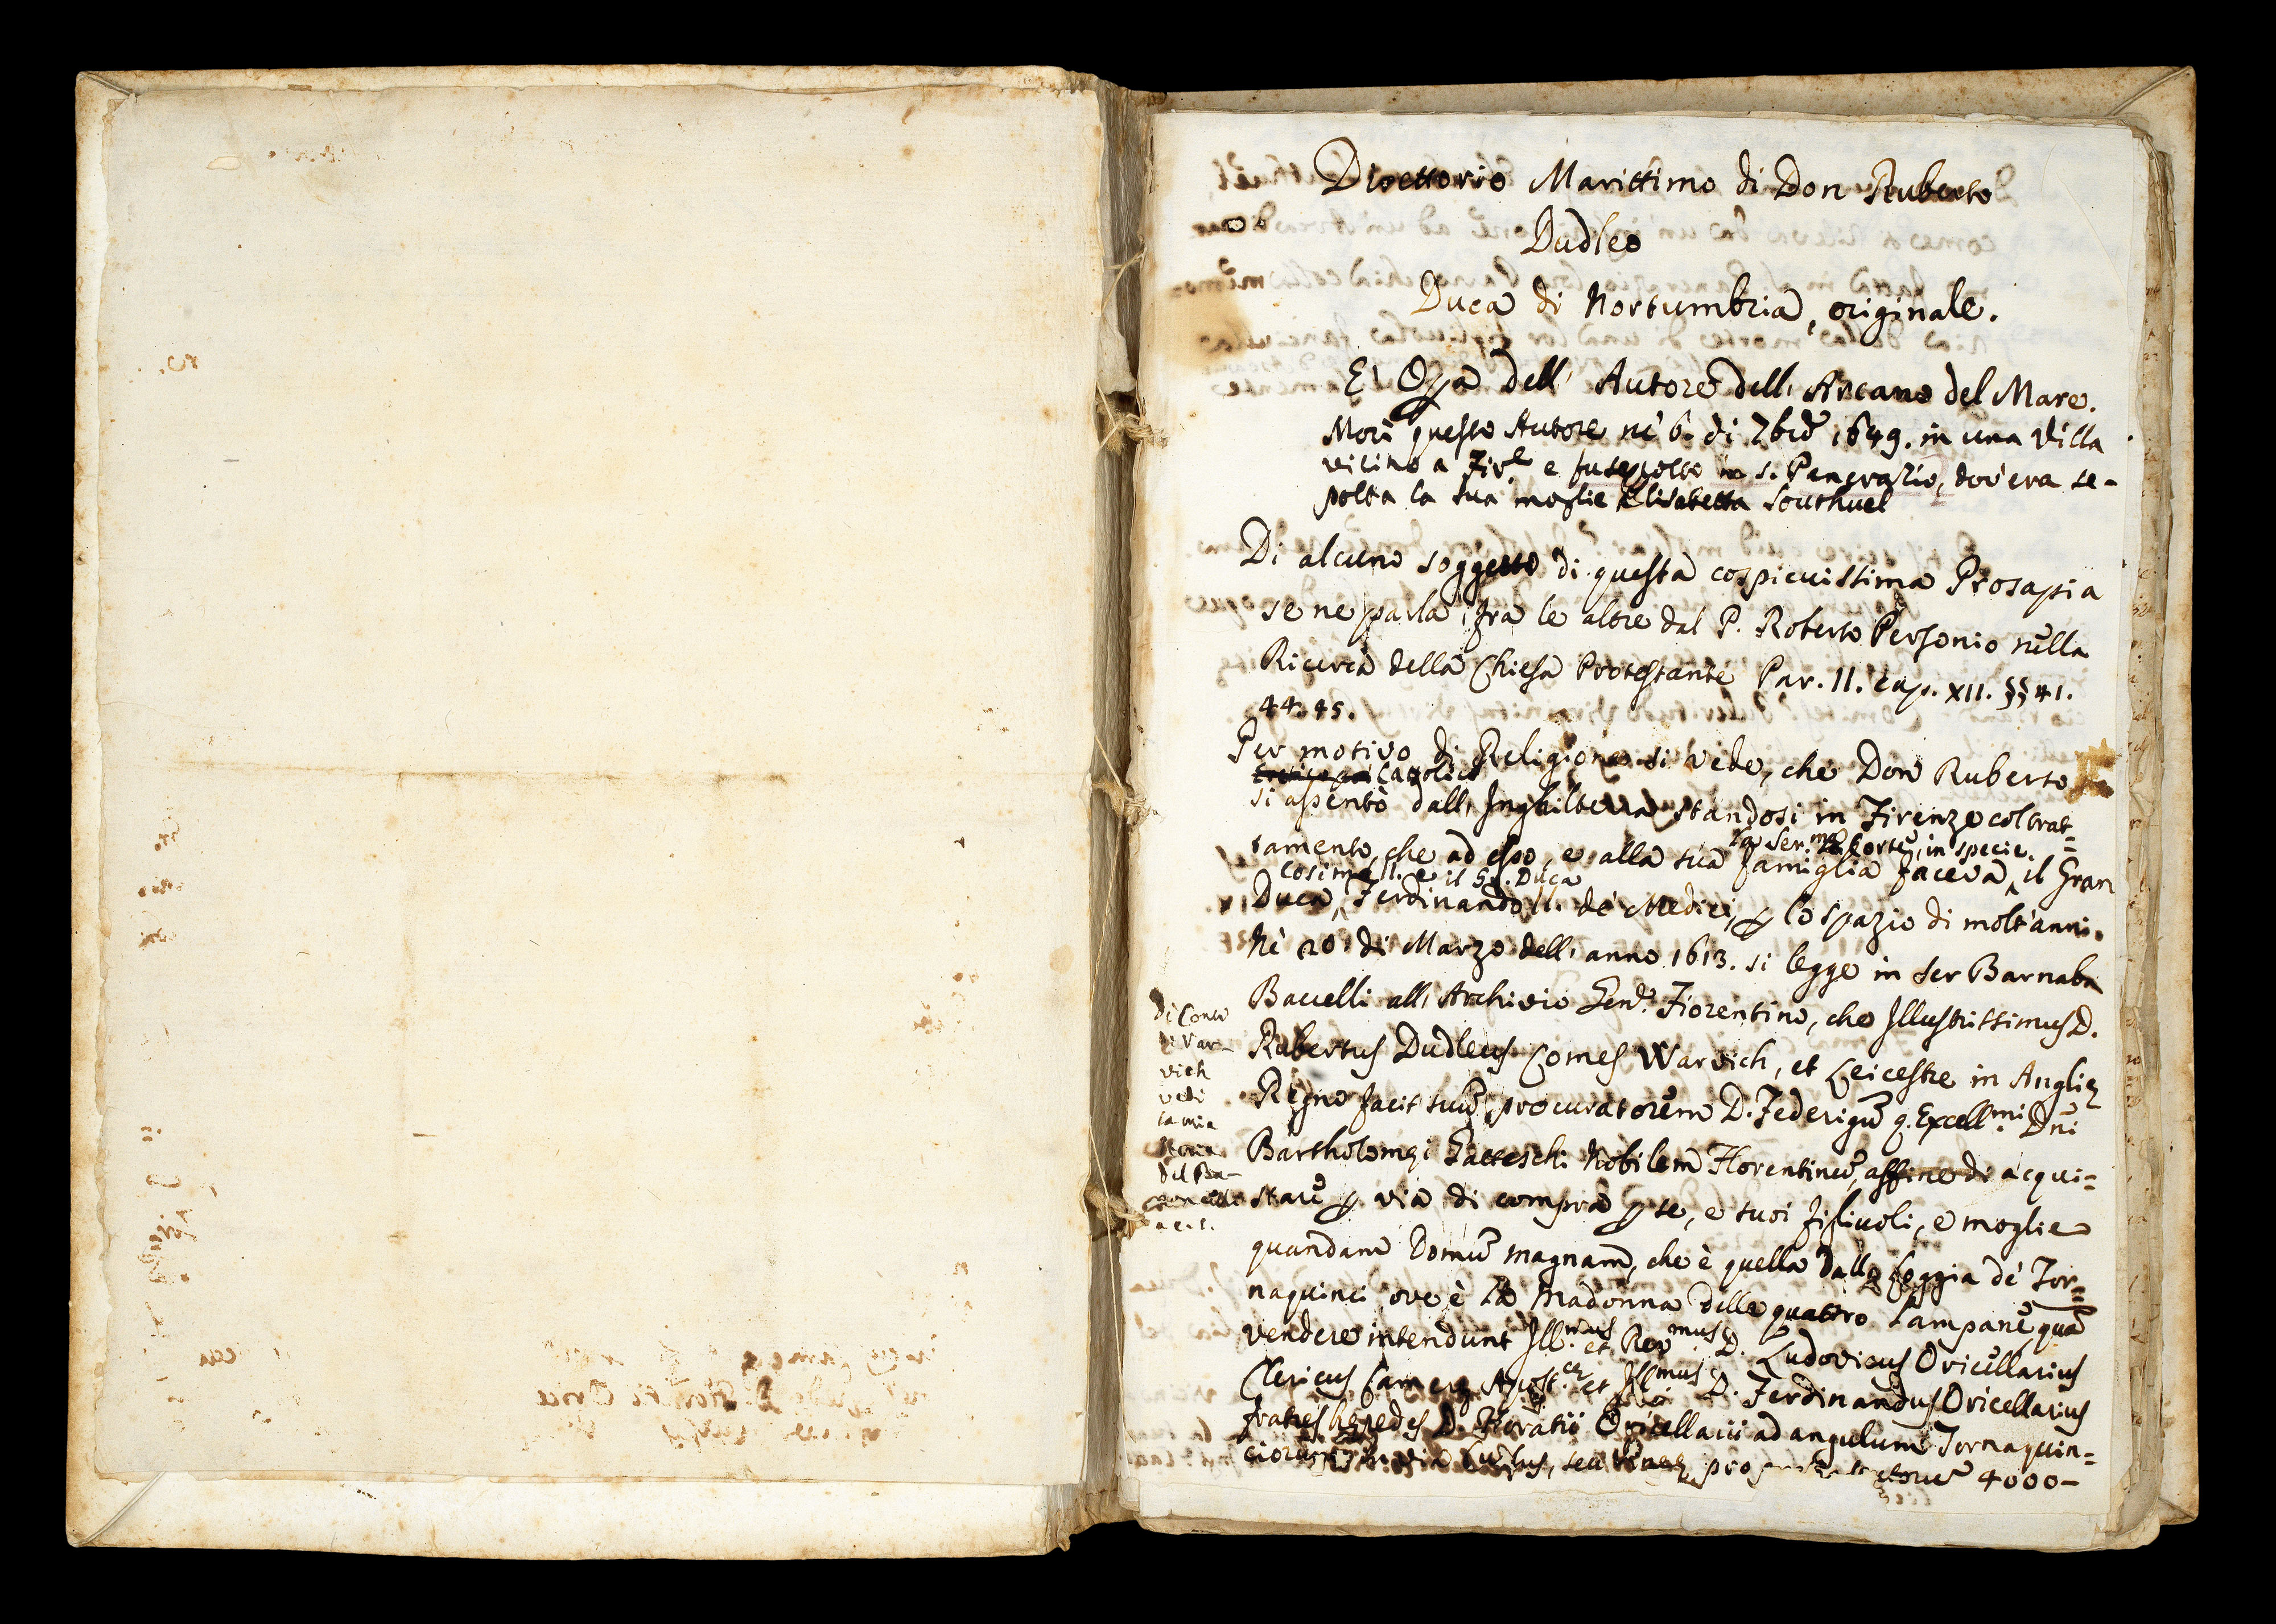 Direttorio Marittimo di Don Ruberto
Dudleo
Duca di Nortumbria, originale.
E' Opa dell' Autore dell' Arcano del Mare.
Morì questo Autore ne' 6. di 7bre 1649. in una Villa
vicino a Fire e fu sepolto in S. Pancrazio, dov'era se-
polta la sua moglie Elisabetta Southuel
Di alcuno soggetto di questa cospicuissima Prosapia
se ne parla fra le altre dal P. Roberto Personio nella
Ricerca della Chiesa Protestante Par. II. cap. XII. §§ 41.
44. 45.
Per motivo di Religione si vede, che Don Ruberto
Cattolico
si assentò dall' Inghilterra standosi in Firenze col trat=
la Ser.ma Corte, in specie.
tamento, che ad esso, e alla sua famiglia faceva, il Gran
Cosimo II. e il G. Duca
Duca, Ferdinando II. de' Medici, p lo spazio di molt'anni.
Ne' 20. di Marzo dell' anno 1613. si legge in Ser Barnaba
Baccelli all' Archivio Gen.e Fiorentino, che Illustrissimus D.
Rubertus Dudleus Comes Warvich, et Leicestre in Anglię
Regno facit suũ procuratorem D. Federigũ q. Excell.mi Dni
Bartholomęi Gatteschi Nobilem Florentinũ, affine di acqui=
stare p via di compra p se, e suoi figliuoli, e moglie
quandam Domũ magnam, che è quella dalla Loggia de' Tor=
naquinci ove è la Madonna delle quattro Campane quã
vendere intendunt Ill.mus et Rev.mus D. Ludovicus Oricellarius
Clericus Camerę Apost.cę et Ill.mus D. Ferdinandus Oricellarius
fratres hęredes D. Horatii Oricellarii ad angulum Tornaquin=
ciorũ via seu Vineę, pro 4000-
Di Conte
di Var-
vich
vedi
la mia
Storia
del